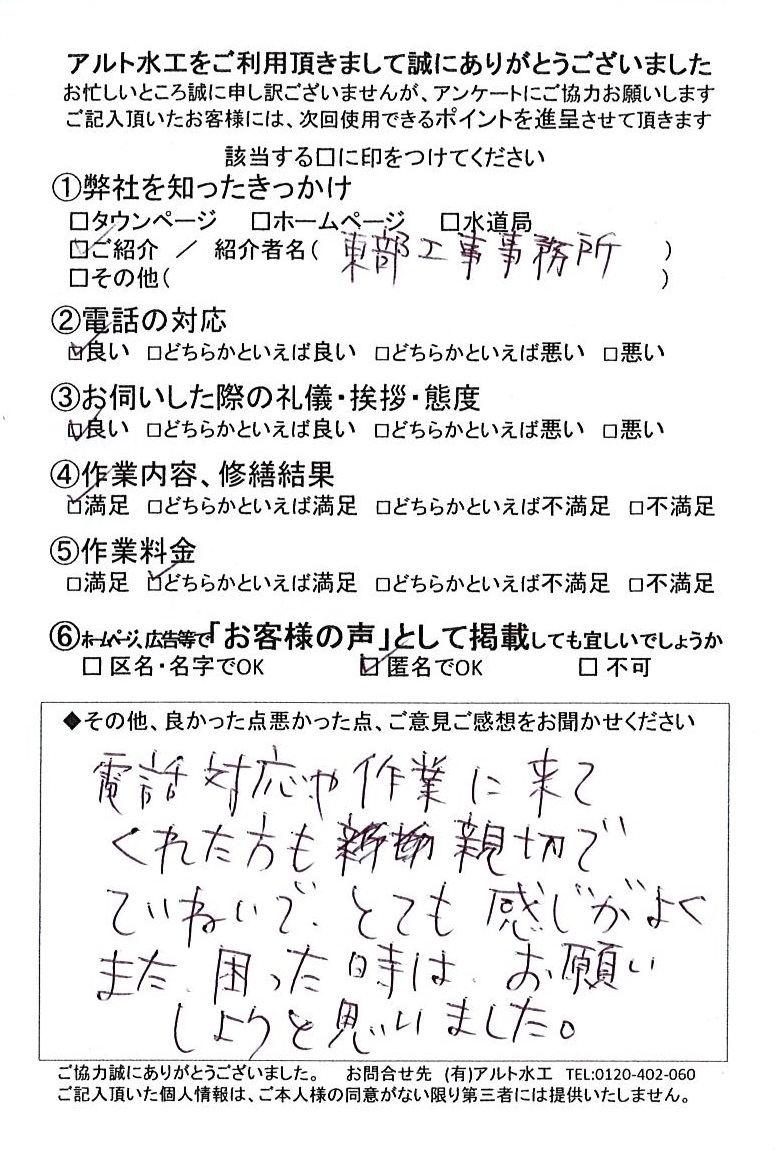 アルト水工をご利用頂きまして誠にありがとうございました
お忙しいところ誠に申し訳ございませんが、アンケートにご協力お願いします
ご記入頂いたお客様には、次回使用できるポイントを進呈させて頂きます
該当する□に印をつけてください
①弊社を知ったきっかけ
□タウンページ □ホームページ □水道局
☑ご紹介 ／ 紹介者名( 東部工事事務所 )
□その他( )
②電話の対応
☑良い □どちらかといえば良い □どちらかといえば悪い □悪い
③お伺いした際の礼儀・挨拶・態度
☑良い □どちらかといえば良い □どちらかといえば悪い □悪い
④作業内容、修繕結果
☑満足 □どちらかといえば満足 □どちらかといえば不満足 □不満足
⑤作業料金
□満足 ☑どちらかといえば満足 □どちらかといえば不満足 □不満足
⑥ホームページ、広告等で「お客様の声」として掲載しても宜しいでしょうか
□ 区名・名字でOK ☑ 匿名でOK □ 不可
◆その他、良かった点悪かった点、ご意見ご感想をお聞かせください
電話対応や作業に来て
くれた方も親切で
ていねいで、とても感じがよく
また、困った時は、お願い
しようと思いました。
ご協力誠にありがとうございました。 お問合せ先 (有)アルト水工 TEL:0120-402-060
ご記入頂いた個人情報は、ご本人様の同意がない限り第三者には提供いたしません。